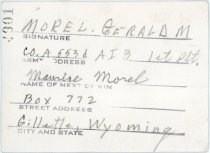 1001
MOREL. GERALD M
SIGNATURE
CO. A 553d A I B 1st Plt.
ARMY ADDRESS
Maurise Morel
NAME OF NEXT OF KIN
Box 772
STREET ADDRESS
Gillette Wyoming
CITY AND STATE